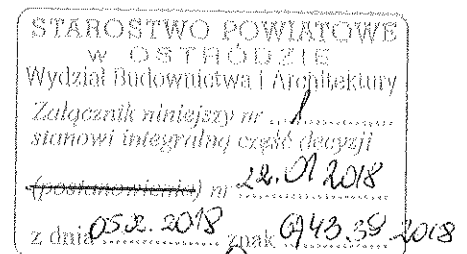 STAROSTWO POWIATOWE
W OSTRÓDZIE
Wydział Budownictwa i Architektury
Załącznik niniejszy nr 1
stanowi integralną część decyzji
(postanowienia) nr 22.01.2018
z dnia 05.2.2018 znak 6743.39.2018